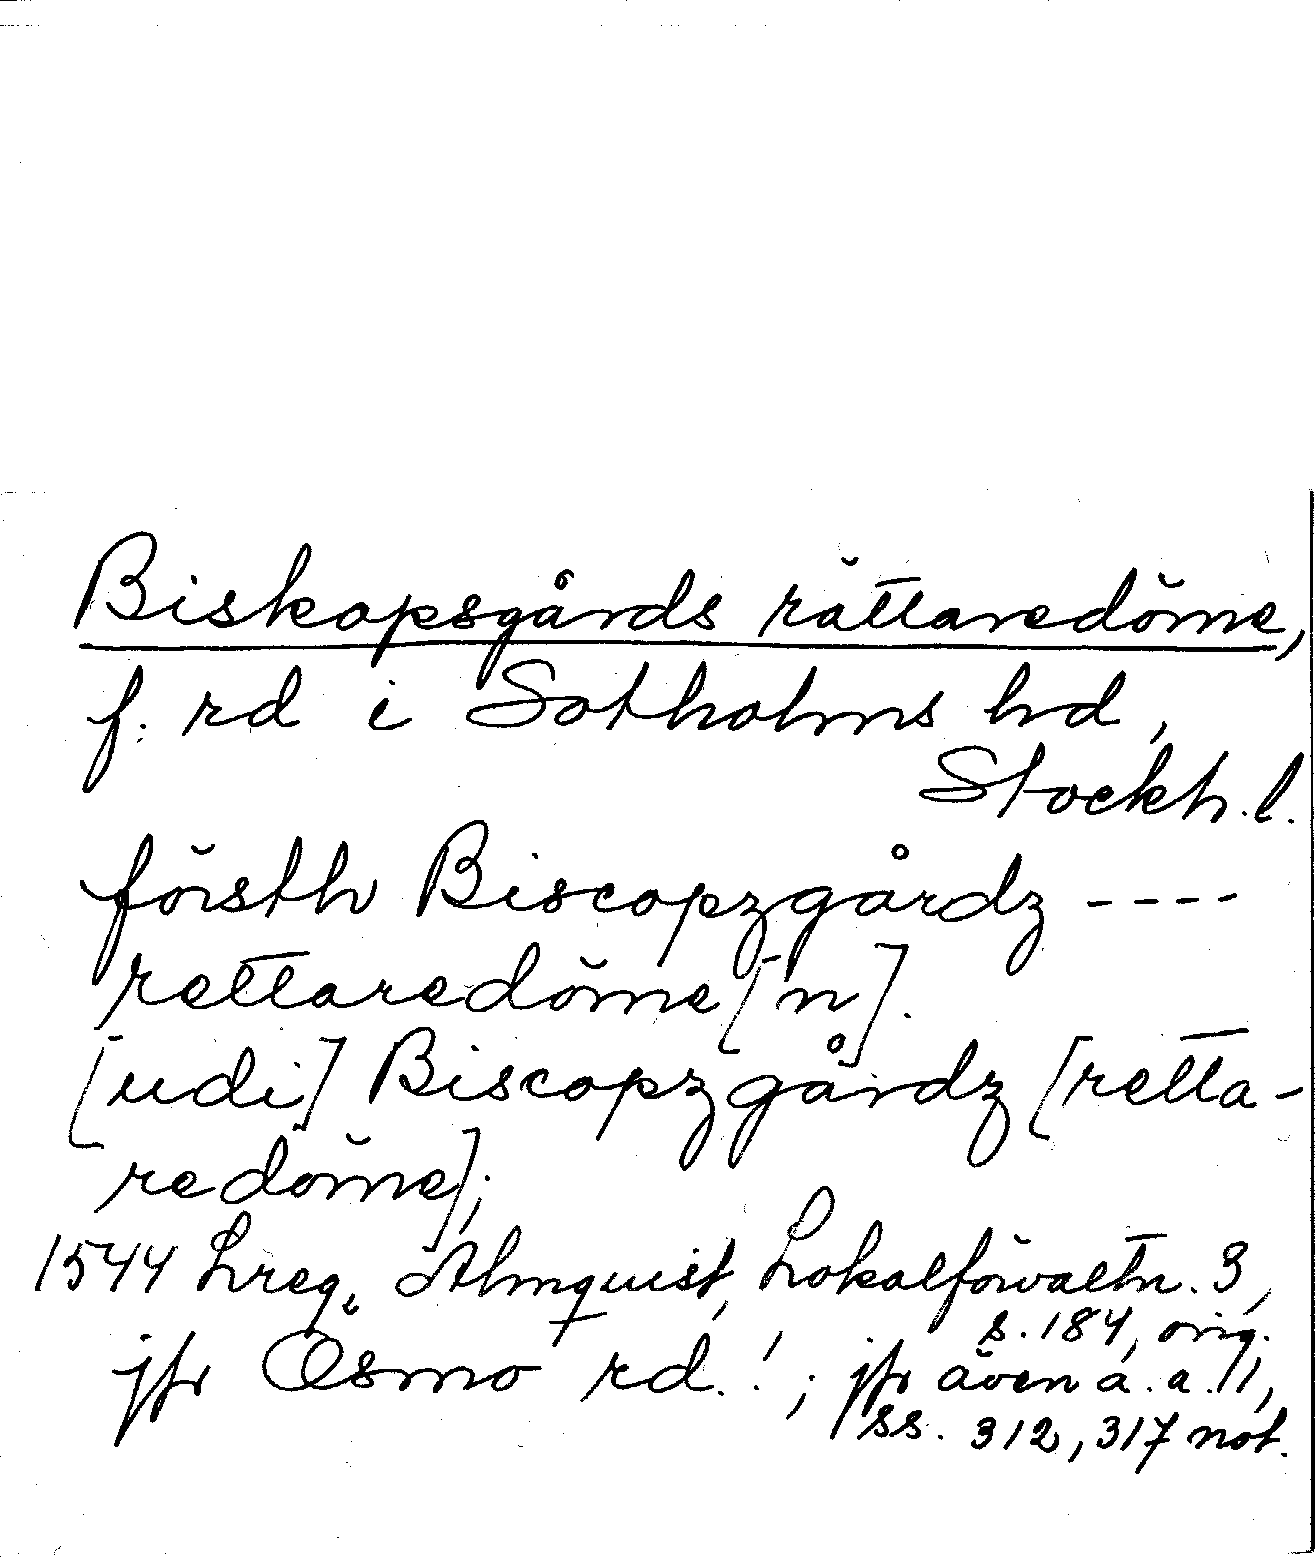 Biskopsgårds rättaredöme,
f. rd i Sotholms hd,
Stockh. l.
försth Biscopzgårdz ----
rettaredöme[n].
[udi] Biscopzgårdz [retta-
redöme];
1544 Lreg, Almquist, Lokalförvaltn. 3,
s. 184, orig.
jfr Ösmo rd.!; jfr även a. a. 1,
ss. 312, 317 not.